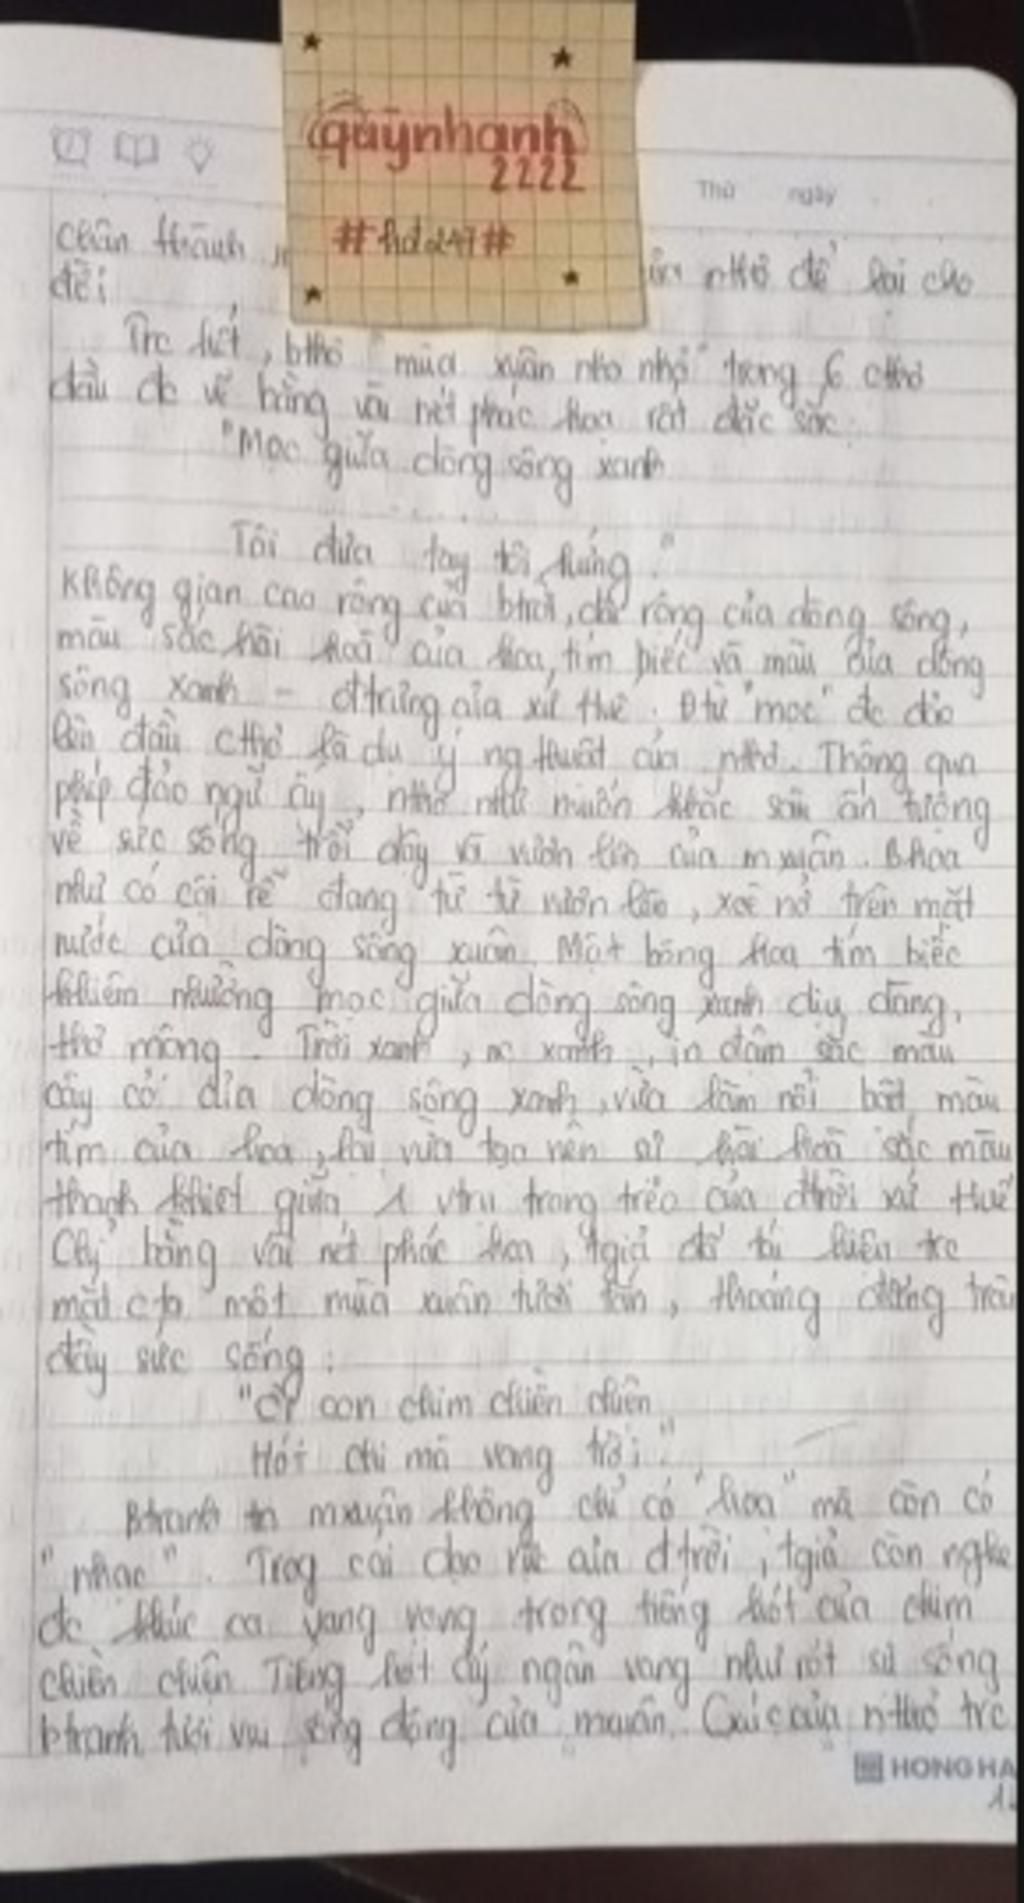 quỳnhanh
2222
#hdd247#
Thứ ngày
chân thành nhỏ để lại cho
đời
Trc hết, bthơ "mùa xuân nho nhỏ" trong 6 cthơ
đầu đc vẽ bằng vài nét phác hoạ rất đặc sắc:
"Mọc giữa dòng sông xanh
....
Tôi đưa tay tôi hứng."
Không gian cao rộng của btrời, dài rộng của dòng sông,
màu sắc hài hoà của hoa, tím biếc và màu của dòng
sông xanh - đtrưng của xứ Huế. Đtừ "mọc" đc đảo
lên đầu cthơ là dụ ý ng thuật của nthơ. Thông qua
phép đảo ngữ ấy, nthơ như muốn khắc sâu ấn tượng
về sức sống trỗi dậy và vươn lên của mxuân. Bhoa
như có cội rễ đang từ từ vươn lên, xoè nở trên mặt
nước của dòng sông xuân. Một bông hoa tím biếc
khiêm nhường mọc giữa dòng sông xanh dịu dàng,
thơ mộng. Trời xanh, nc xanh, in đậm sắc màu
cây cỏ của dòng sông xanh, vừa làm nổi bật màu
tím của hoa, lại vừa tạo nên sự hài hoà sắc màu
thanh khiết giữa 1 vtrụ trong trẻo của đtrời xứ Huế
Chỉ bằng vài nét phác hoạ, tgiả đã tái hiện trc
mặt cta một mùa xuân tươi tắn, thoáng đãng tràn
đầy sức sống:
"Ơi con chim chiền chiện
Hót chi mà vang trời."
Btranh mxuân không chỉ có "hoa" mà còn có
"nhạc". Trog cái của đtrời, tgiả còn nghe
đc khúc ca vang vọng trong tiếng hót của chim
chiền chiện Tiếng hót ấy ngân vang như rót sự sống
btranh tươi vui sống động của mxuân. Cxúc của nthơ trc
HONG HA